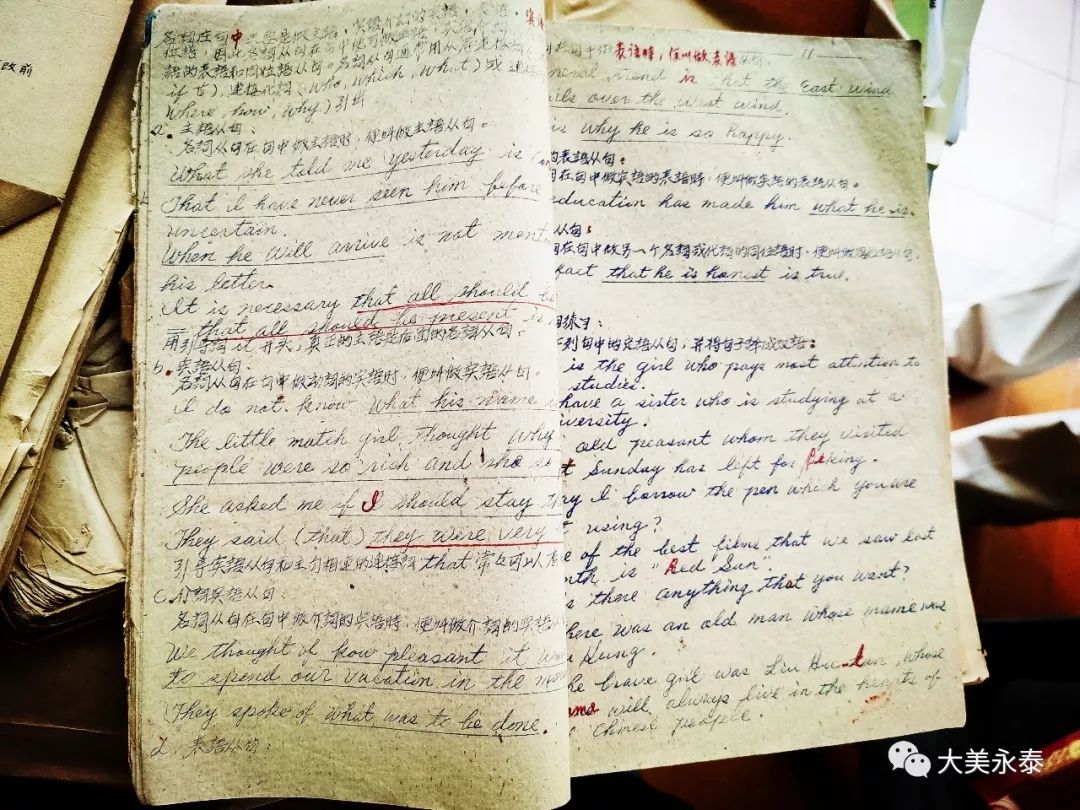 改前
名詞在句中主要是做主語,宾語,介詞的宾語,表语,宾语
位語,因此名詞从句在句中便可做主語,宾語,介詞
語的表語和同位語从句。名詞从句通常用从屬連接詞(
if 等),連接代詞(who, which, what)或連接
where, how, why)引出
a. 主語从句:
名詞从句在句中做主語時,便叫做主語从句。
What she told me yesterday is
That I have never seen him before
uncertain.
When he will arrive is not ment
his letter.
It is necessary that all should be
= that all should be present is
用引導詞 it 开头,真正的主語是后面的名詞从句。
b. 宾語从句:
名詞从句在句中做动詞的宾語時,便叫做宾語从句。
I do not know what his name
The little match girl thought why
people were so rich and she so
She asked me if I should stay
They said (that) they were very
引導宾語从句和主句相連的連接詞 that 常々可以
c. 介詞宾語从句
名詞从句在句中做介詞的宾語時,便叫做介詞的宾語从
We thought of how pleasant it w
to spend our vacation in the mo
They spoke of what was to be done.
d. 表語从句:
句中做表語時,便叫做表語从句。 11
neral trend is that the East wind
ails over the west wind.
is why he is so happy.
的表語从句:
在句中做宾語的表語時,便叫做宾語的表語从句。
education has made him what he is.
从句:
在句中做另一个名詞或代詞的同位語時,便叫做同位語从句。
fact that he is honest is true.
練习:
列句中的定語从句,并将句子译成汉語:
is the girl who pays most attention to
studies.
have a sister who is studying at a
iversity.
old peasant whom they visited
t Sunday has left for Peking.
I borrow the pen which you are
t using?
e of the best films that we saw last
nth is "Red Sun".
s there anything that you want?
here was an old man whose name was
Kung.
he brave girl was Liu Hu-lan, whose
name will always live in the hearts of
Chinese people.
大美永泰